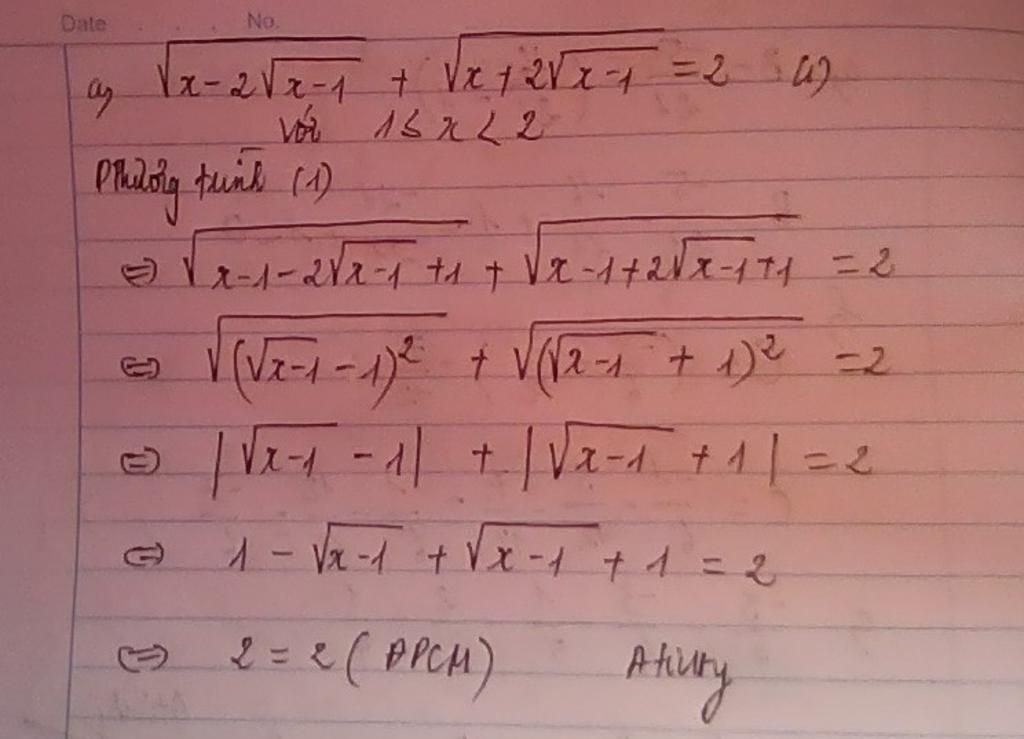 Date . . . No.
a) √(x-2√(x-1)) + √(x+2√(x-1)) = 2 (1)
với 1 ≤ x < 2
Phương trình (1)
⇔ √(x-1-2√(x-1)+1) + √(x-1+2√(x-1)+1) = 2
⇔ √((√(x-1)-1)²) + √((√(x-1)+1)²) = 2
⇔ |√(x-1) -1| + |√(x-1) +1| = 2
⇔ 1 - √(x-1) + √(x-1) + 1 = 2
⇔ 2 = 2 (ĐPCM)